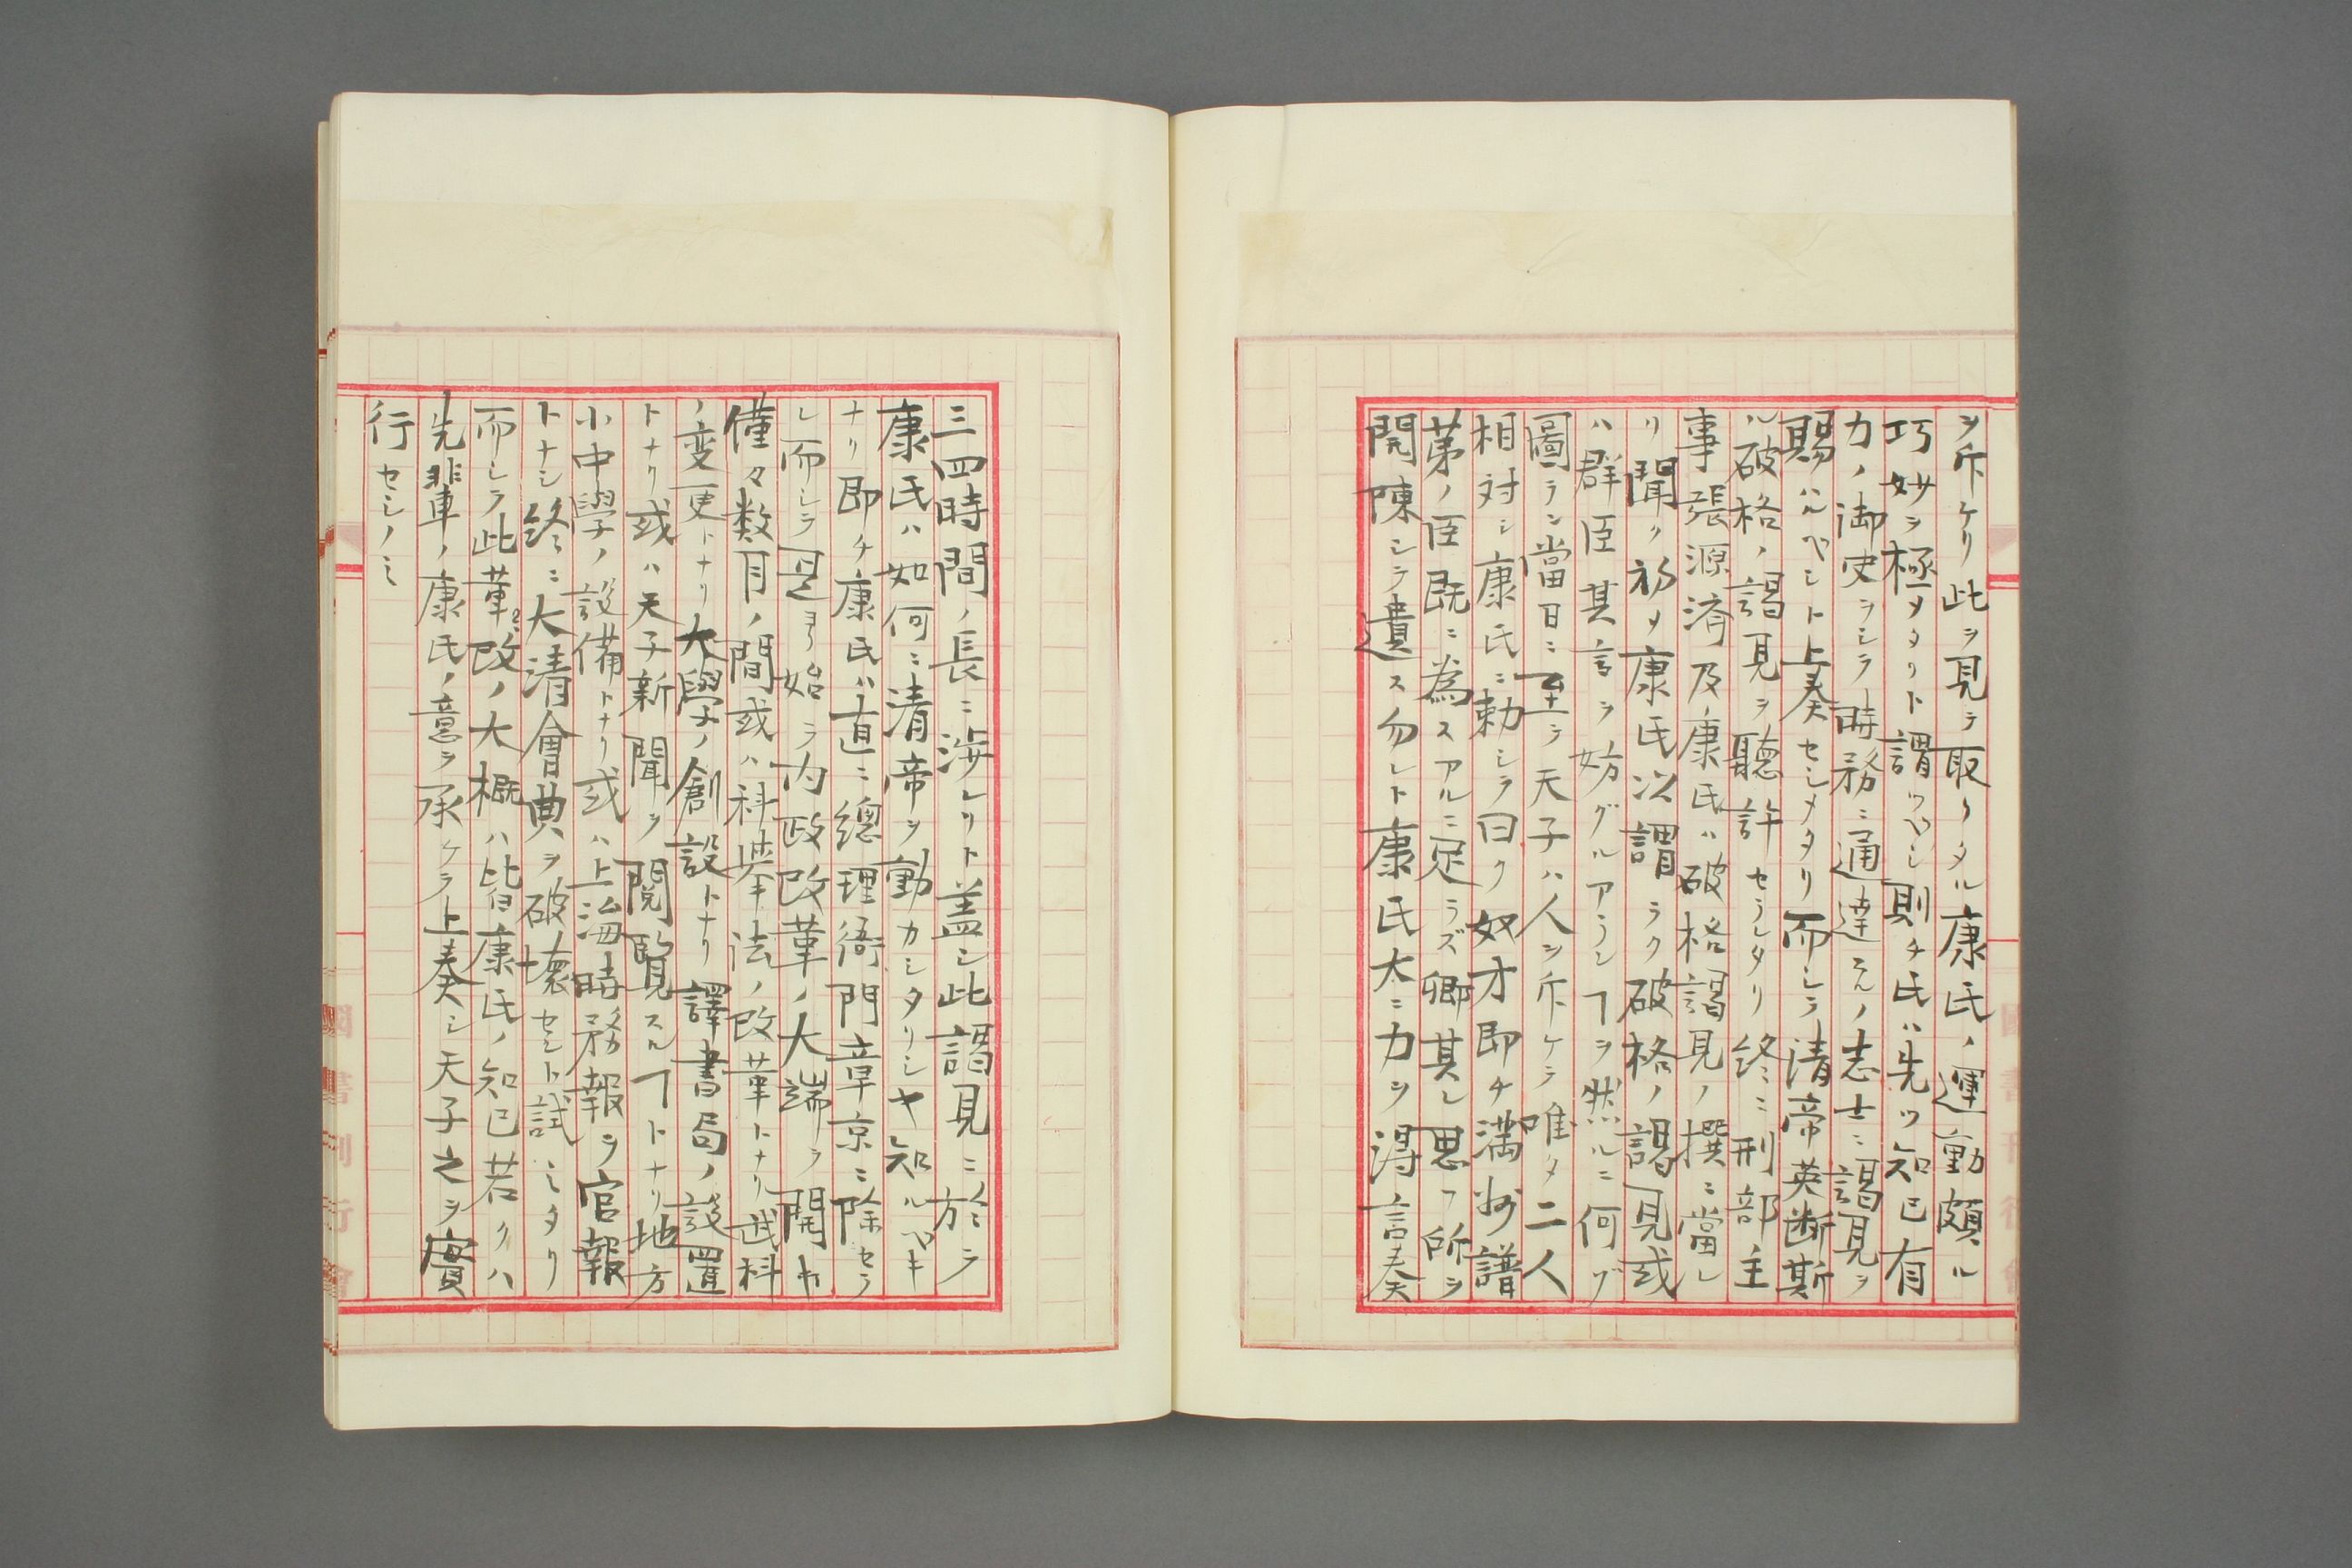 ヲ斥ケリ此ヲ見テ取リタル康氏ノ運動頗ル
巧妙ヲ極メタリト謂ツベシ則チ氏ハ先ツ知己有
力ノ御史ヲシテ時務ニ通達スルノ志士ニ謁見ヲ
賜ハルベシト上奏セシメタリ而シテ清帝英断斯
ル破格ノ謁見ヲ聴許セラレタリ終ニ刑部主
事張源済及康氏ハ破格謁見ノ撰ニ當レ
リ聞ク初メ康氏以謂ラク破格ノ謁見或
ハ群臣其言ヲ妨グルアランヿヲ然ルニ何ゾ
圖ラン當日ニ至ラ天子ハ人ヲ斥ケテ唯タ二人
相対シ康氏ニ勅シテ曰ク奴才即チ満州譜
第ノ臣既ニ為スアルニ足ラズ卿其レ思フ所ヲ
開陳シテ遺ス勿レト康氏大ニ力ヲ得言奏
三四時間ノ長ニ渉レリト盖シ此謁見ニ於テ
康氏ハ如何ニ清帝ヲ動カシタリシヤ知ルベキ
ナリ即チ康氏ハ直ニ總理衙門章京ニ除セラ
レ而シテ是ヨリ始テ内政改革ノ大端ヲ開キ
僅々数月ノ間或ハ科挙法ノ改革トナリ武科
ノ変更トナリ大學ノ創設トナリ譯書局ノ設置
トナリ或ハ天子新聞ヲ閲覧スルヿトナリ地方
小中學ノ設備トナリ或ハ上海時務報ヲ官報
トナシ終ニ大清會典ヲ破壊セント試ミタリ
而シテ此革改ノ大概ハ皆康氏ノ知己若クハ
先輩ノ康氏ノ意ヲ承ケテ上奏シ天子之ヲ實
行セシノミ
國書刊行會